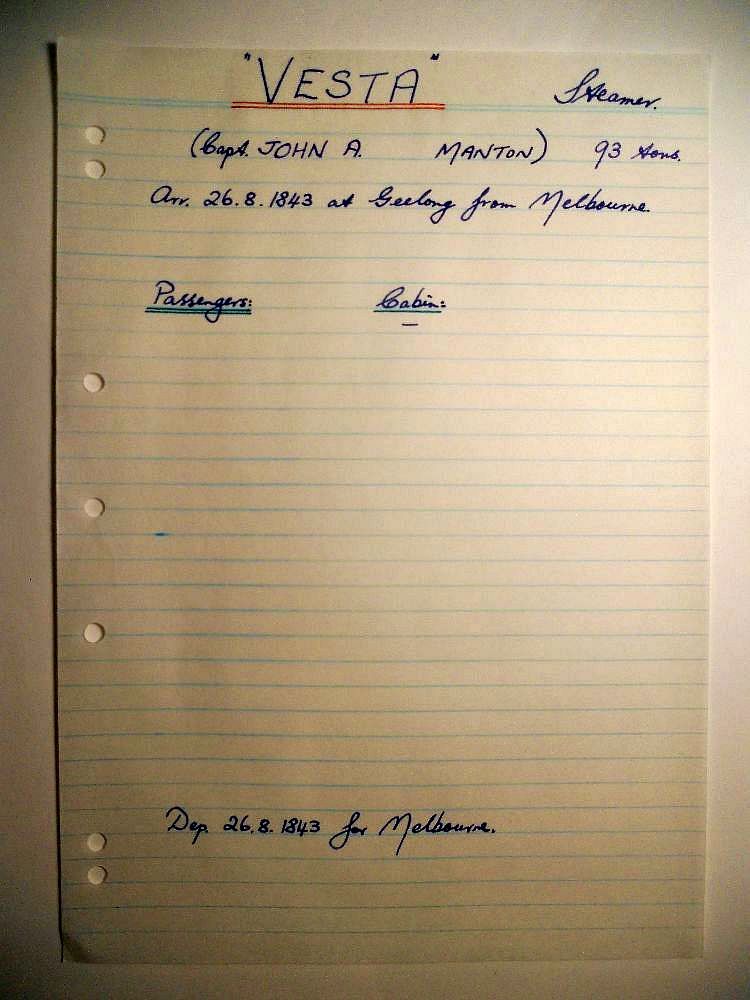 "VESTA" Steamer.
(Capt. JOHN A. MANTON) 93 tons.
Arr. 26.8.1843 at Geelong from Melbourne.
Passengers: Cabin:
—
Dep. 26.8.1843 for Melbourne.